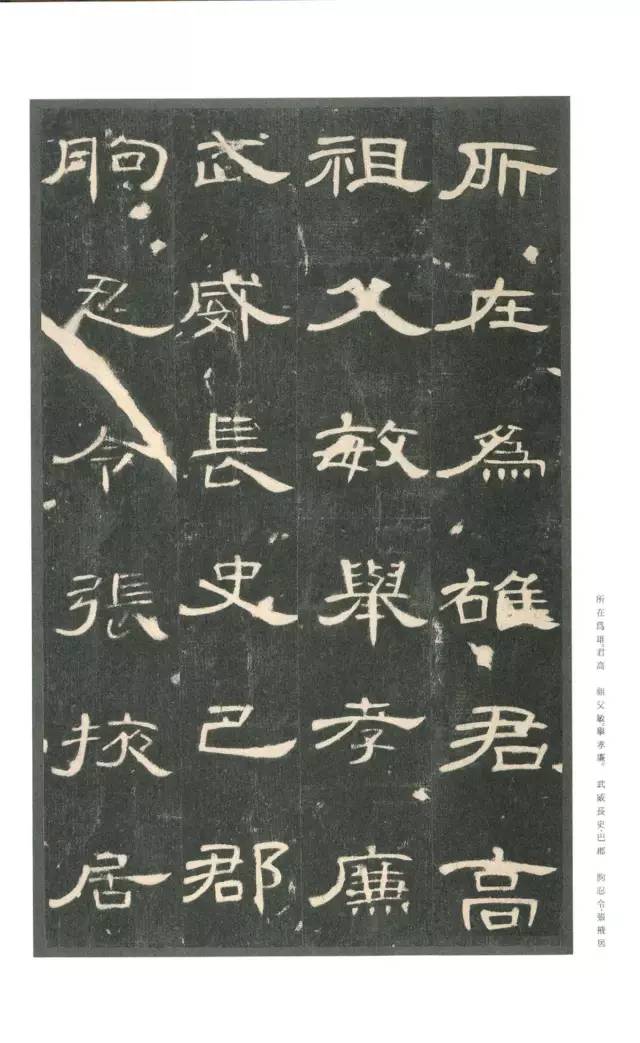 所在爲雄君高
祖父敏舉孝廉
武威長史巴郡
朐忍令張掖居
所在爲雄。君高 祖父敏。舉孝廉。 武威長史。巴郡 朐忍令。張掖居